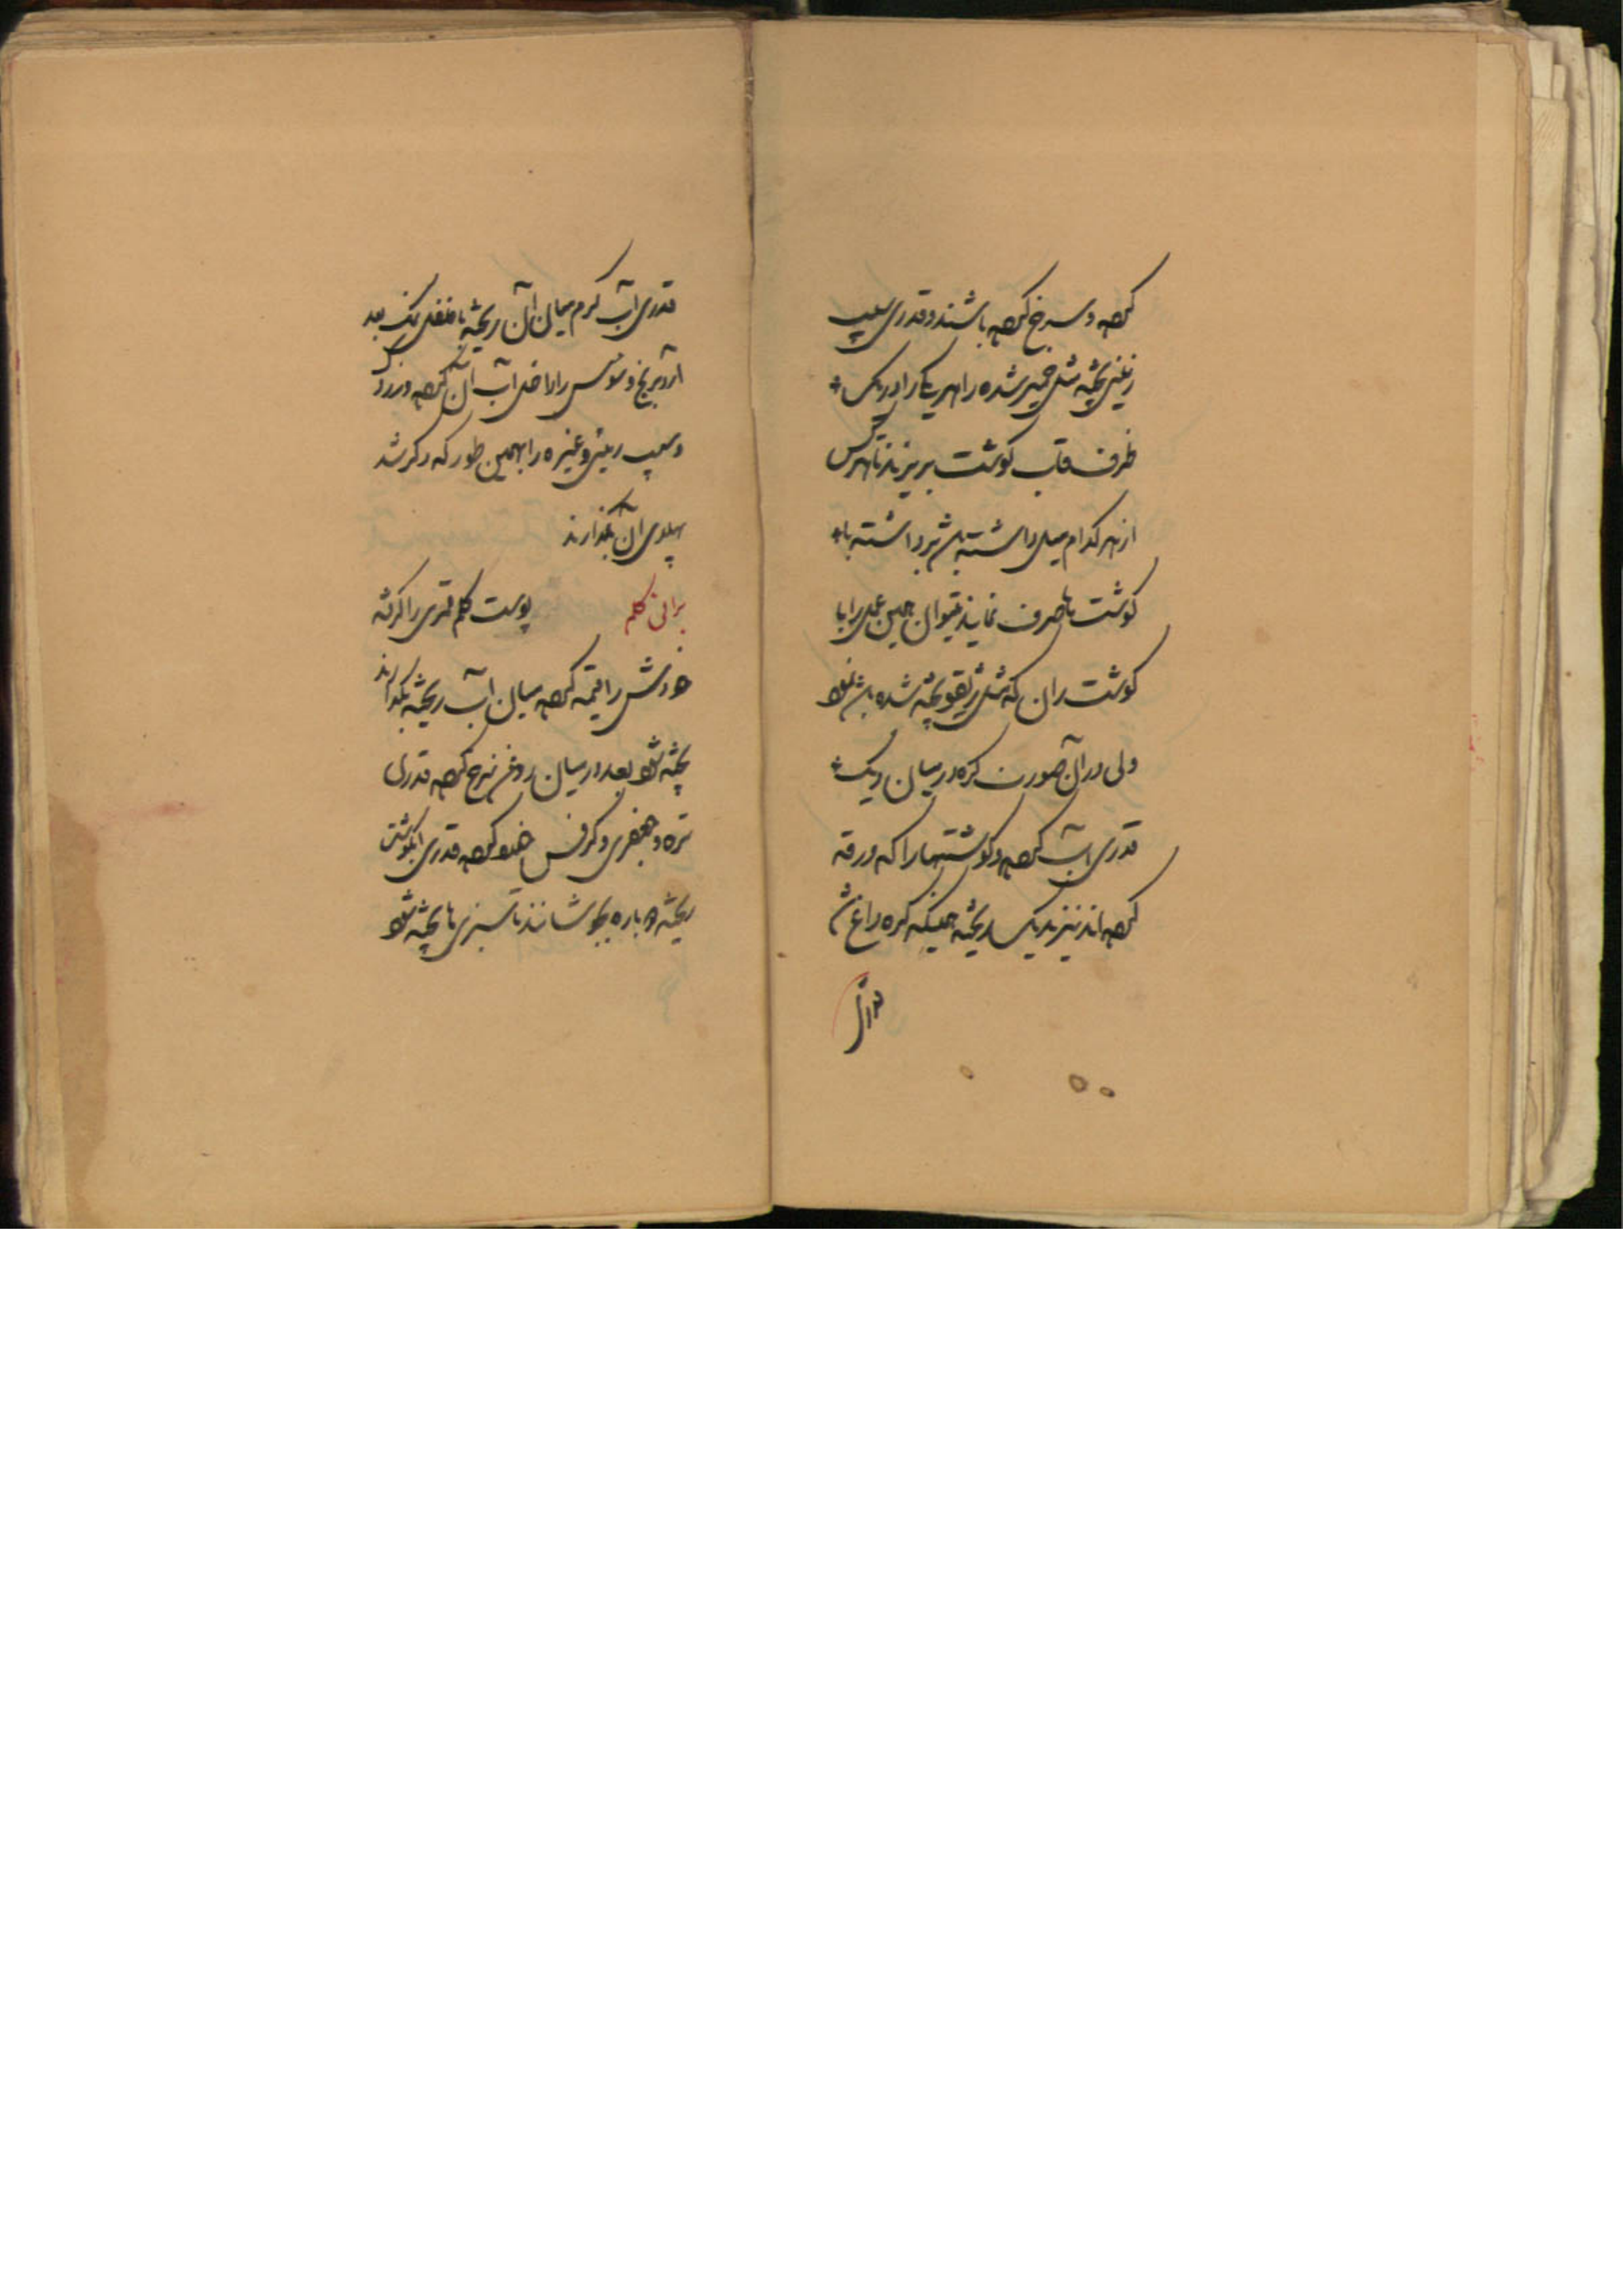 کرده و سرخ کرده باشند و قدری سیب
زمینی پخته مثل خمیر شده را هر یک را در یک
ظرف قاب گوشت بریزند تا هر کس
از هر کدام میل داشته باشد برداشته با
گوشت ها صرف نمایند میتوان همین عمل را با
گوشت ران که مثل ژیقو پخته شده باشد نمود
ولی در آن صورت کره در میان دیگ
قدری آب کرده و گوشتها را که ورقه
کرده اند نیز در دیگ ریخته همینکه کره داغ شد
قدری
قدری آب گرم میان آن ریخته با فلفل نمک بعد
آرد برنج و سوس را داخل آب آن کرده
و سیب زمینی و غیره را بهمین طور که ذکر شد
پهلوی آن بگذارند
برانی کلم پوست کلم قمری را گرفته
خودش را قیمه کرده میان آب ریخته بگذارند
پخته شود بعد در میان روغن سرخ کرده قدری
تره و جعفری و کرفس خورد کرده قدری آبگوشت
ریخته دوباره بجوشانند تا سبزی ها پخته شود